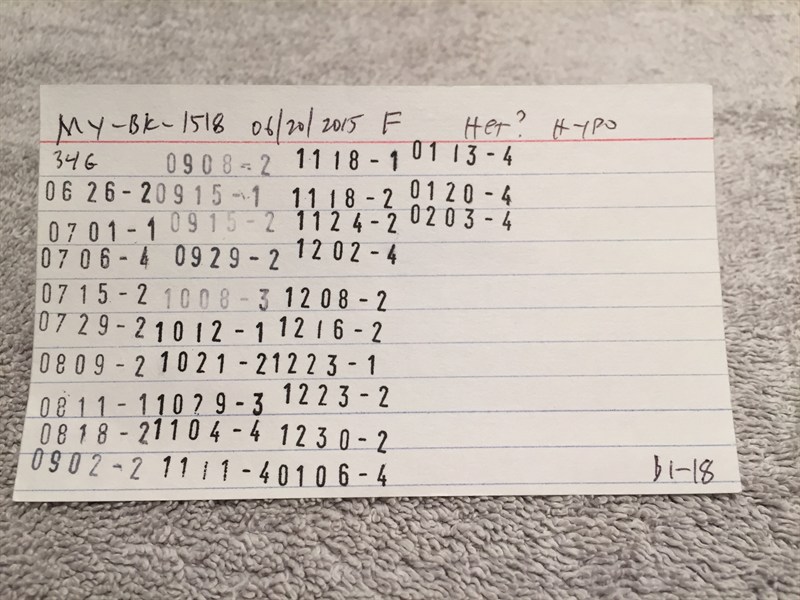 MY-BK-1518 06/20/2015 F Het? HYPO
34G 0908-2 1118-1 0113-4
0626-2 0915-1 1118-2 0120-4
0701-1 0915-2 1124-2 0203-4
0706-4 0929-2 1202-4
0715-2 1008-3 1208-2
0729-2 1012-1 1216-2
0809-2 1021-2 1223-1
0811-1 1029-3 1223-2
0818-2 1104-4 1230-2
0902-2 1111-4 0106-4
b1-18